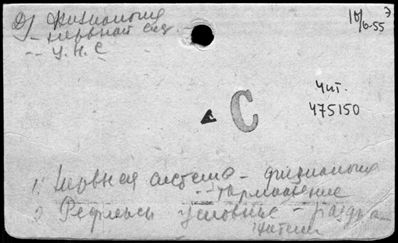 2) Физиология
- нервной сис.
-- У.Н.С
10/6-55
Э
Чит.
475150
С
1. Нервная система - физиология
- торможение
2. Рефлексы условные - раздра-
жители